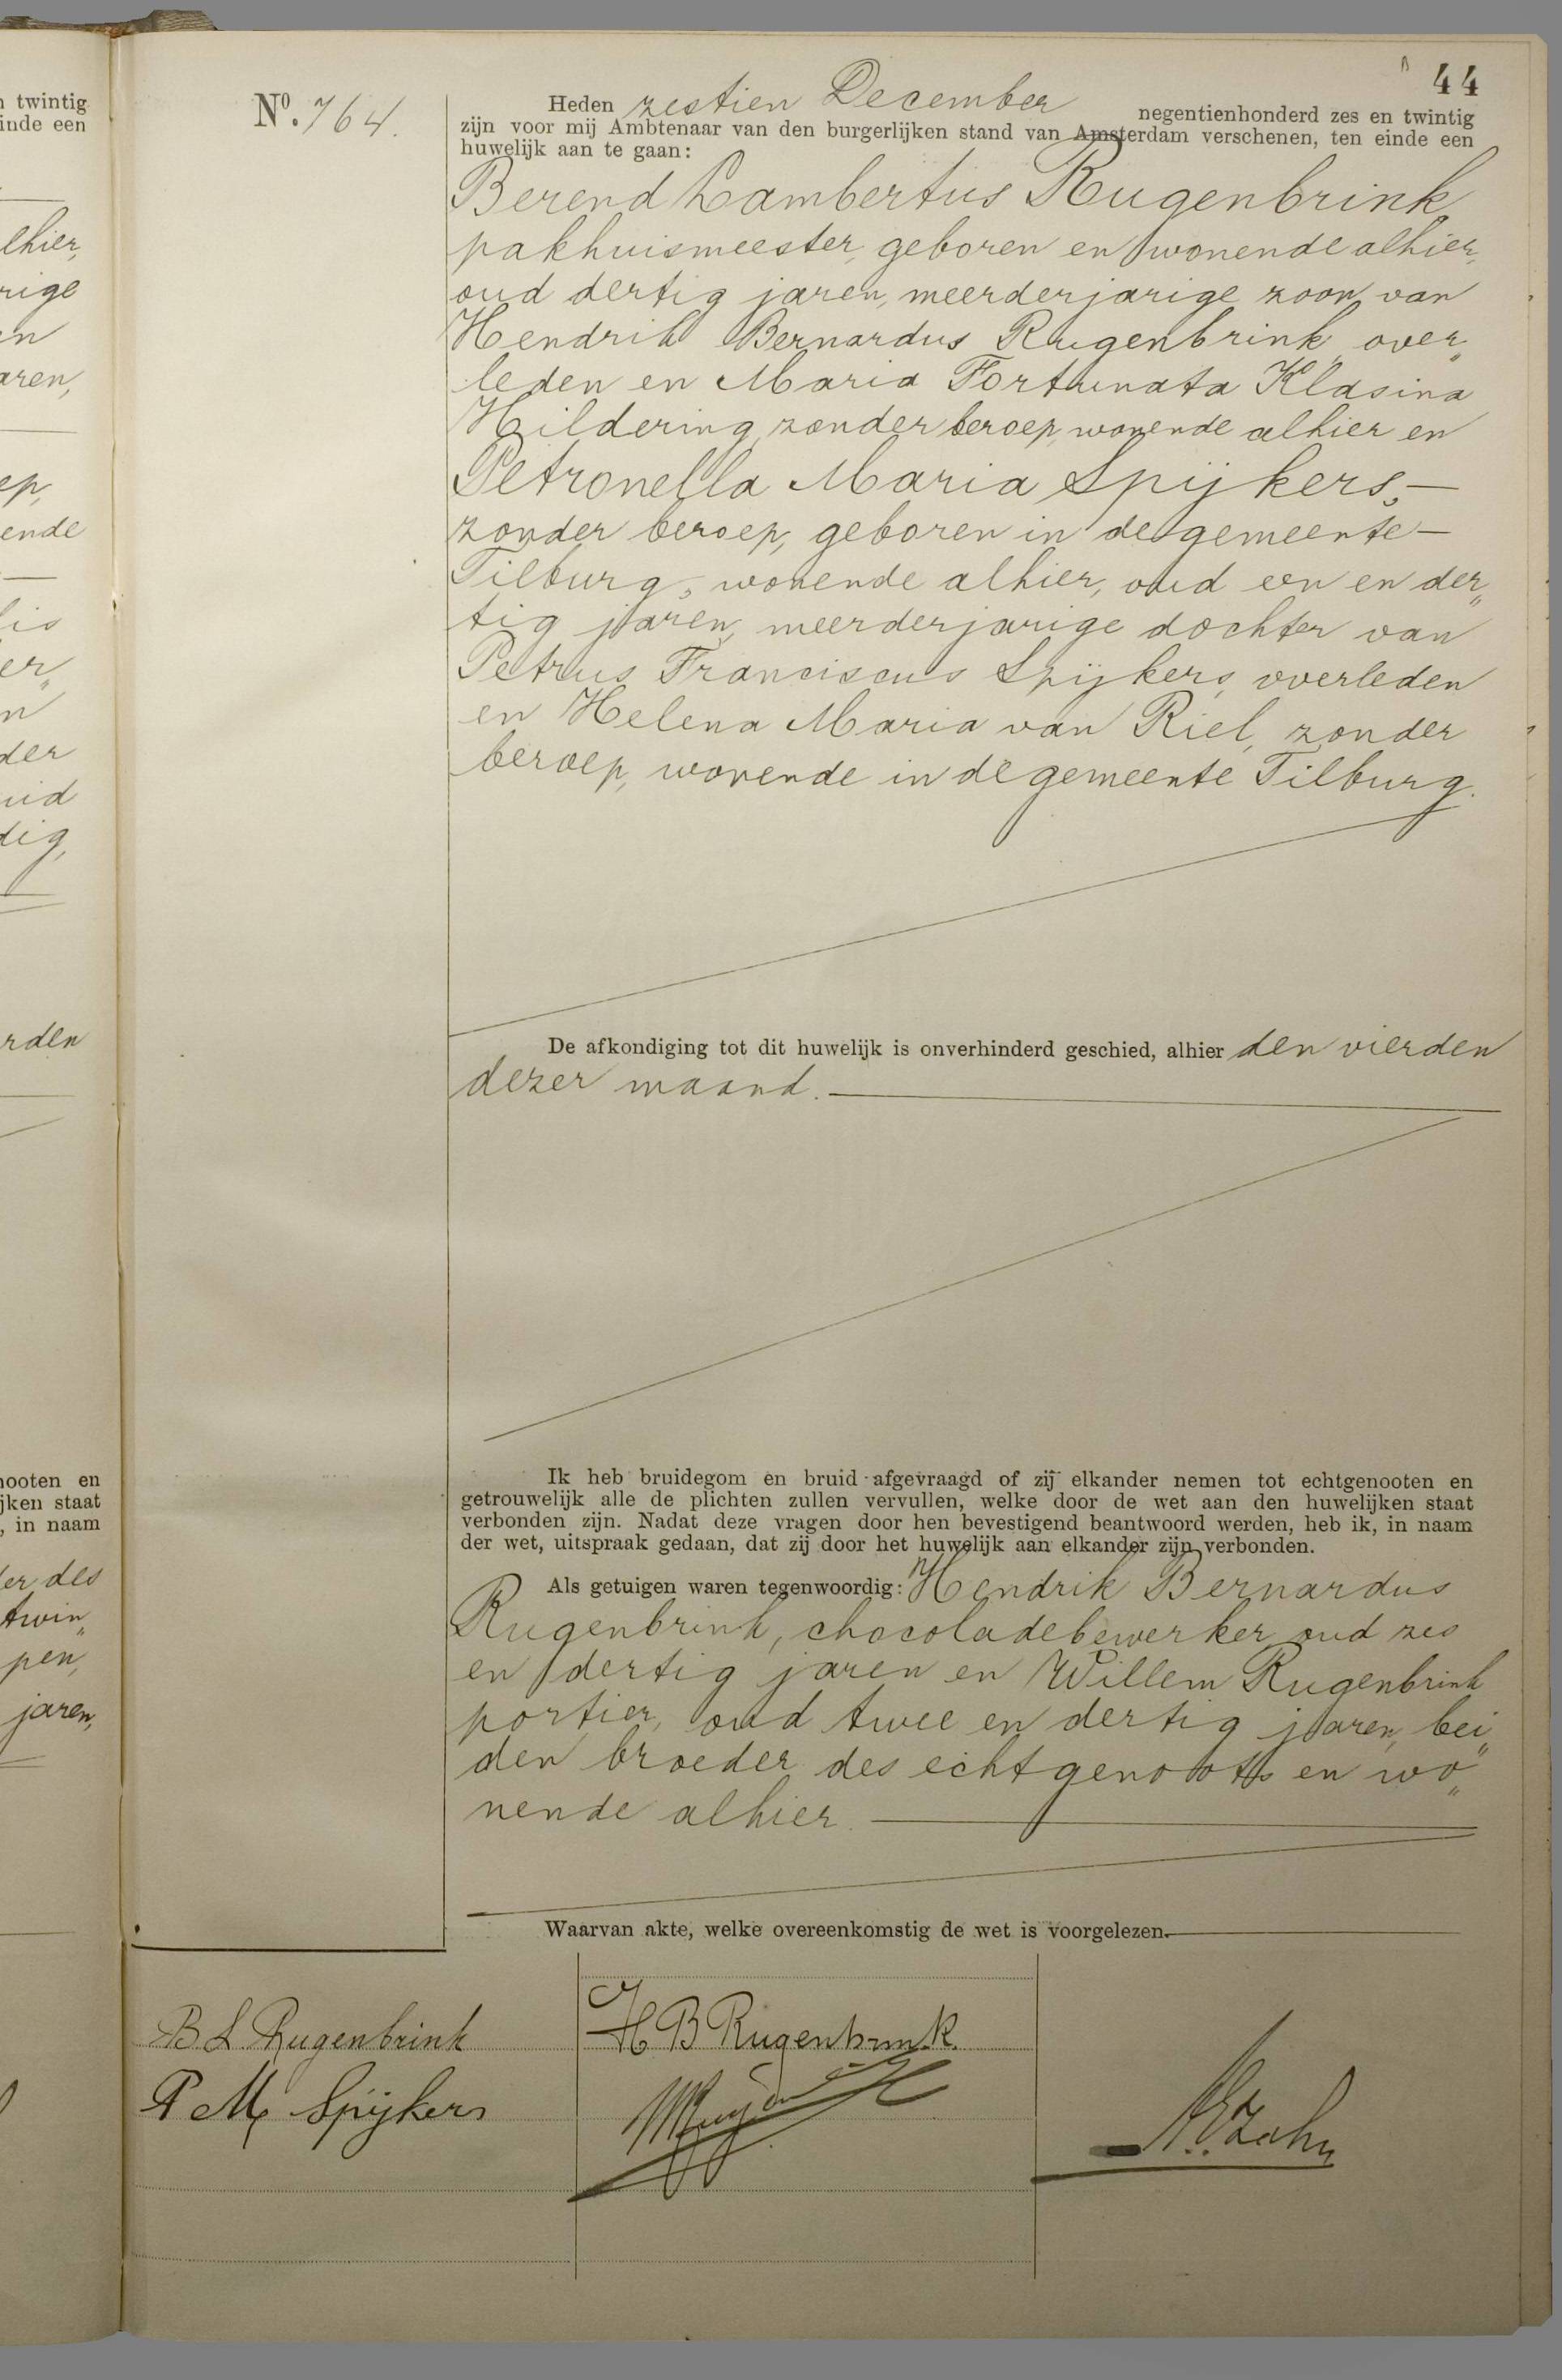 44
n twintig
inde een
lhier,
rige
en
aren,
ep,
ende
lis
er„
n
der
uid
dig,
rden
nooten en
jken staat
, in naam
er des
twin„
pen,
jaren,
No. 764.
Heden zestien December negentienhonderd zes en twintig
zijn voor mij Ambtenaar van den burgerlijken stand van Amsterdam verschenen, ten einde een
huwelijk aan te gaan:
Berend Lambertus Rugenbrink,
pakhuismeester, geboren en wonende alhier,
oud dertig jaren, meerderjarige zoon van
Hendrik Bernardus Rugenbrink, over„
leden en Maria Fortunata Klasina
Hildering, zonder beroep, wonende alhier en
Petronella Maria Spijkers,—
zonder beroep, geboren in de gemeente—
Tilburg, wonende alhier, oud een en der„
tig jaren, meerderjarige dochter van
Petrus Franciscus Spijkers, overleden
en Helena Maria van Riel, zonder
beroep, wonende in de gemeente Tilburg.
De afkondiging tot dit huwelijk is onverhinderd geschied, alhier den vierden
dezer maand.
Ik heb bruidegom en bruid afgevraagd of zij elkander nemen tot echtgenooten en
getrouwelijk alle de plichten zullen vervullen, welke door de wet aan den huwelijken staat
verbonden zijn. Nadat deze vragen door hen bevestigend beantwoord werden, heb ik, in naam
der wet, uitspraak gedaan, dat zij door het huwelijk aan elkander zijn verbonden.
Als getuigen waren tegenwoordig: Hendrik Bernardus
Rugenbrink, chocoladebewerker, oud zes
en dertig jaren en Willem Rugenbrink
portier, oud twee en dertig jaren, bei„
den broeder des echtgenoots en wo„
nende alhier.
Waarvan akte, welke overeenkomstig de wet is voorgelezen.
B L Rugenbrink
P M Spijkers
H B Rugenbrink.
Zahn